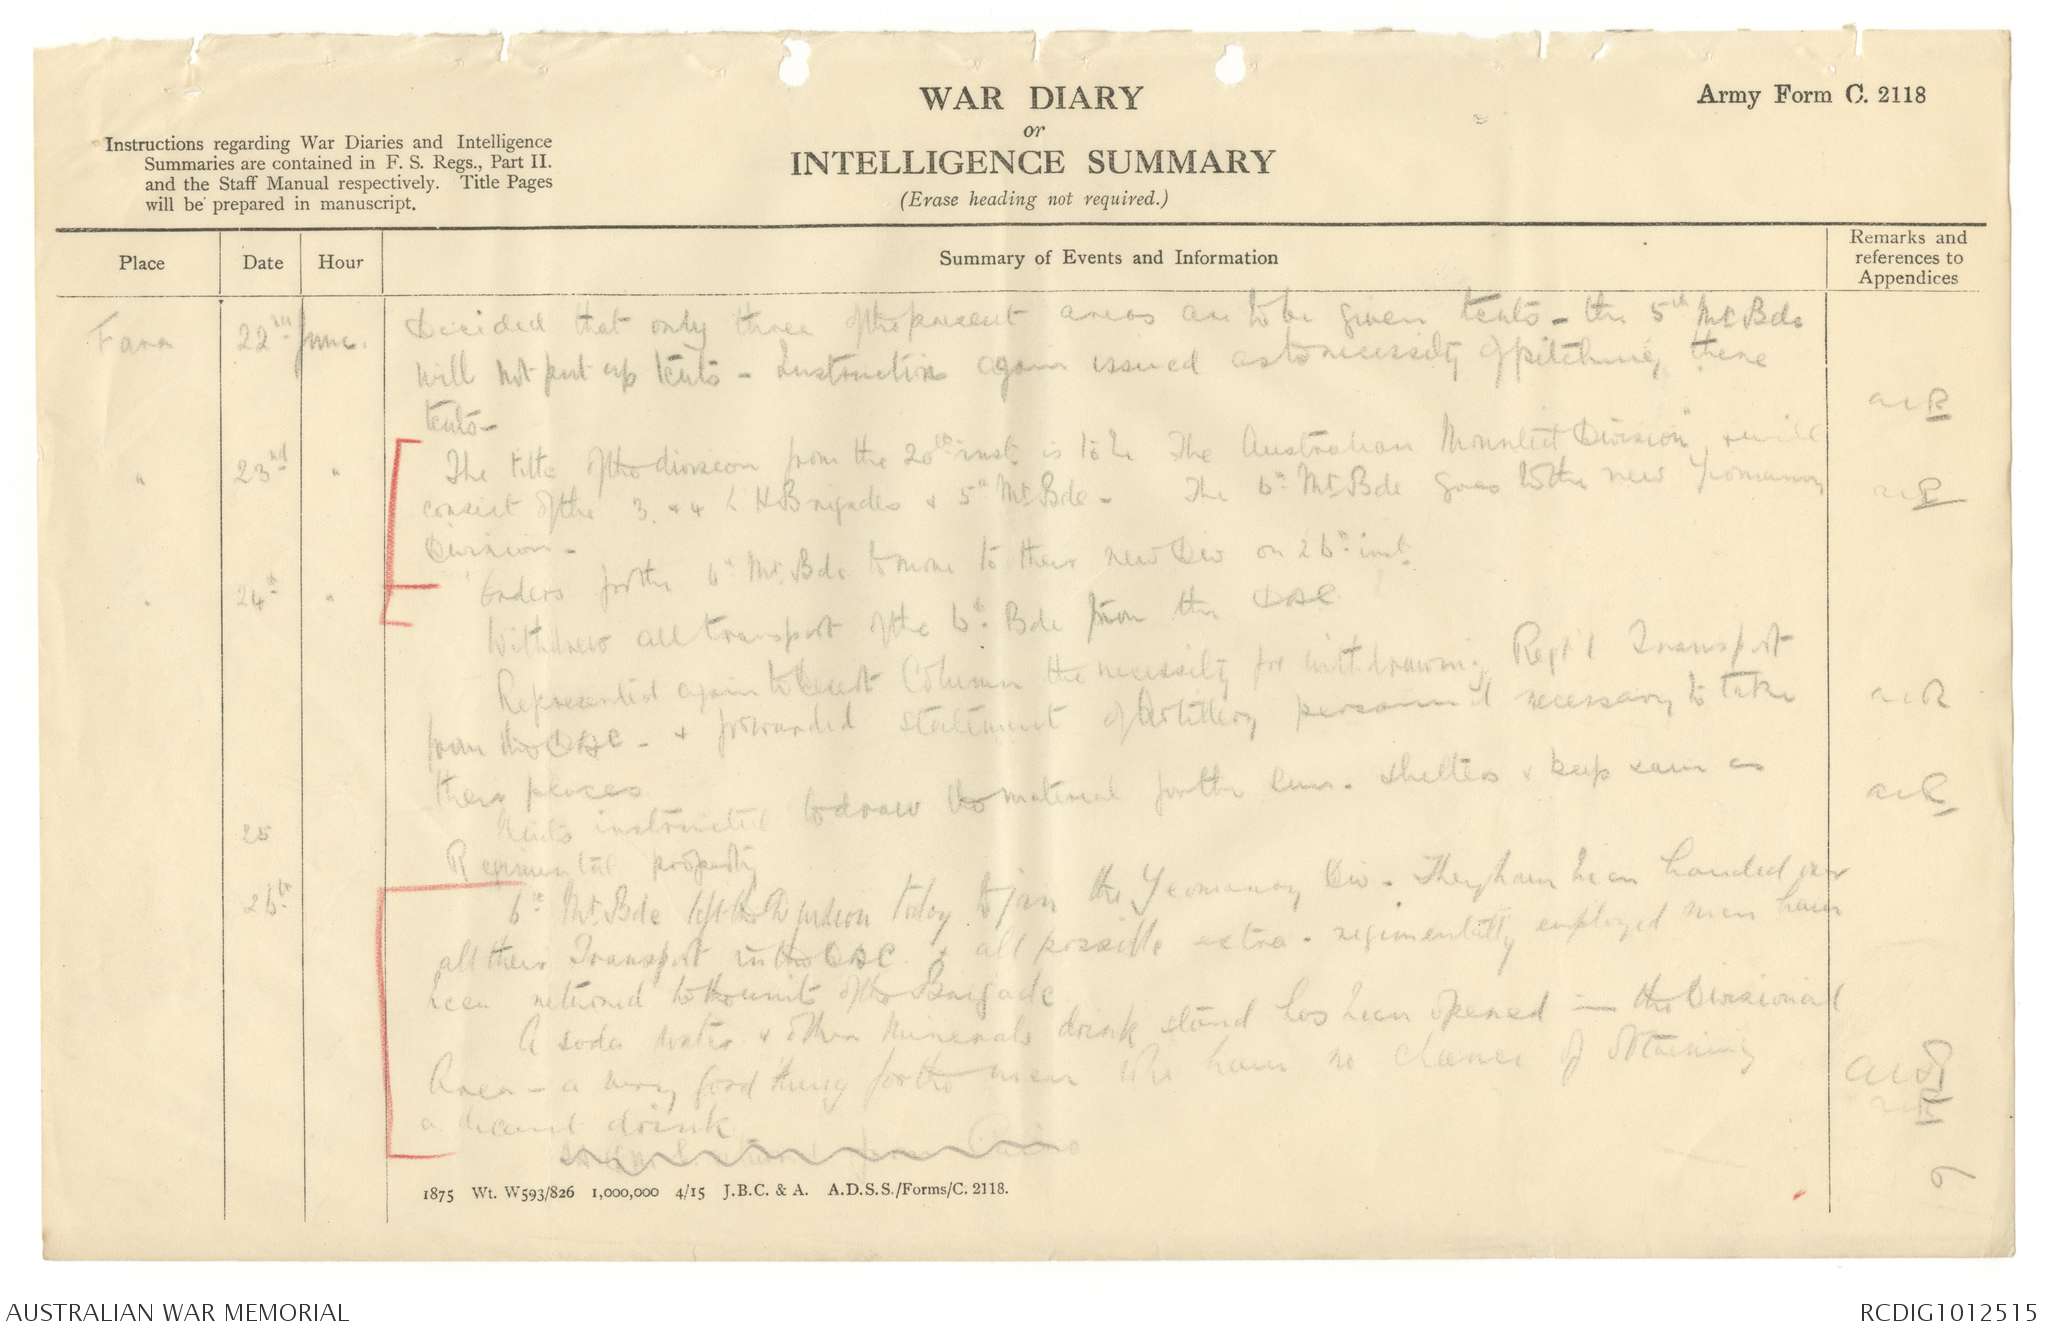 WAR DIARY
or
INTELLIGENCE SUMMARY
(Erase heading not required.)
Army Form C. 2118
Instructions regarding War Diaries and Intelligence
Summaries are contained in F. S. Regs., Part II.
and the Staff Manual respectively. Title Pages
will be prepared in manuscript.
Place Date Hour Summary of Events and Information Remarks and references to Appendices
Fara 22nd June. Decided that only three of the present areas are to be given tents - the 5th Mt. Bde
will not put up tents - Instructions again issued as to necessity of pitching these
tents -
" 23rd " The title of the division from the 20th inst. is to be The Australian Mounted Division" & will
consist of the 3. & 4 L H Brigades & 5th Mt. Bde - The 6th Mt. Bde goes to the new Yeomanry
Division -
" 24th " Orders for the 6th Mt. Bde to move to their new Div on 26th inst.
Withdrew all transport of the 6th Bde from the DAC
Represented again to Desert Column the necessity for withdrawing Regt'l Transport
from the DAC - & forwarded statement of Artillery personnel necessary to take
their places
25 Units instructed to draw the material for the shelters & keep same as
Regimental property
26th 6th Mt. Bde left the Division today to join the Yeomanry Div - They have been handed over
all their Transport in the DAC & all possible extra - regimentally employed men have
been returned to the units of the Brigade
A soda water & other minerals drink stand has been opened in the Divisional
Area - a very good thing for the men who have no chance of obtaining
a decent drink
1875 Wt. W593/826 1,000,000 4/15 J.B.C. & A. A.D.S.S./Forms/C. 2118.
AUSTRALIAN WAR MEMORIAL
RCDIG1012515